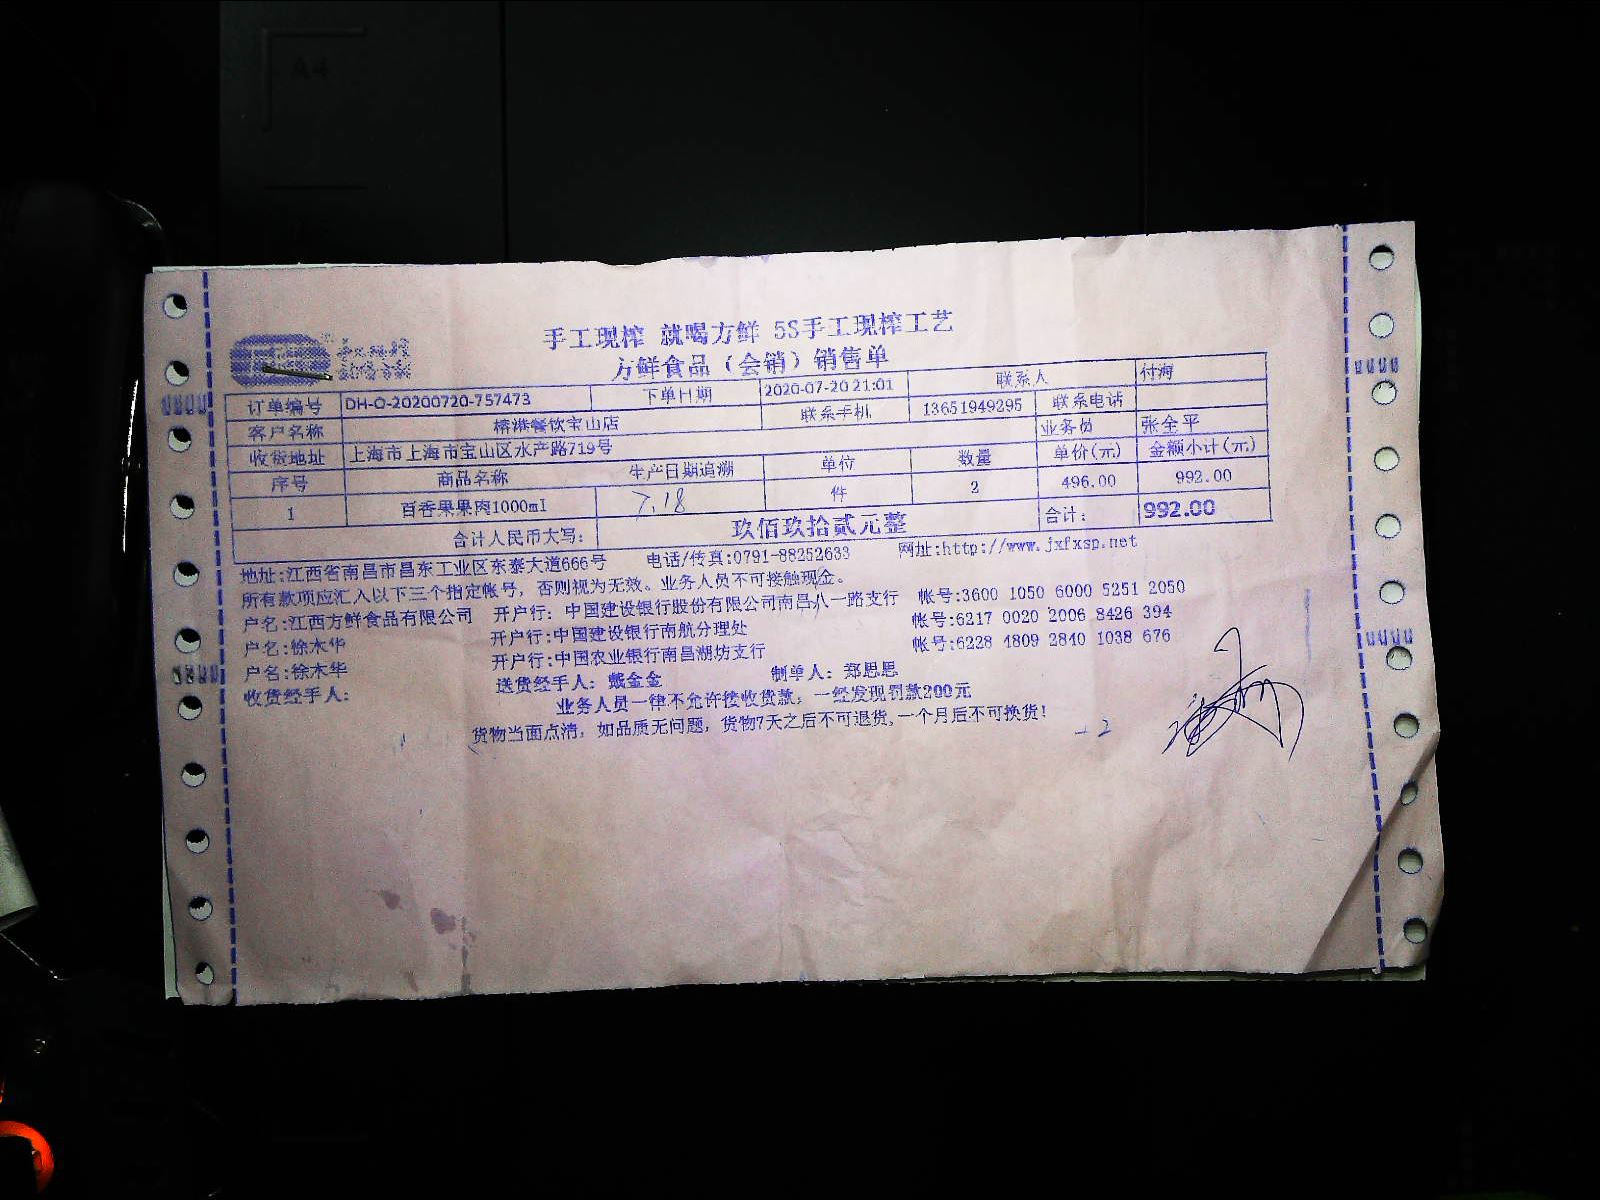 手工现榨 就喝方鲜 5S手工现榨工艺
方鲜食品（会销）销售单
订单编号 DH-O-20200720-757473 下单日期 2020-07-20 21:01 联系人 付海
客户名称 榕港餐饮宝山店 联系手机 13651949295 联系电话
收货地址 上海市上海市宝山区水产路719号 业务员 张全平
序号 商品名称 生产日期追溯 单位 数量 单价(元) 金额小计(元)
1 百香果果肉1000ml 7.18 件 2 496.00 992.00
合计人民币大写: 玖佰玖拾贰元整 合计: 992.00
地址:江西省南昌市昌东工业区东泰大道666号 电话/传真:0791-88252633 网址:http://www.jxfxsp.net
所有款项应汇入以下三个指定帐号，否则视为无效。业务人员不可接触现金。
户名:江西方鲜食品有限公司 开户行: 中国建设银行股份有限公司南昌八一路支行 帐号:3600 1050 6000 5251 2050
户名:徐木华 开户行:中国建设银行南航分理处 帐号:6217 0020 2006 8426 394
户名:徐木华 开户行:中国农业银行南昌湖坊支行 帐号:6228 4809 2840 1038 676
收货经手人: 送货经手人: 戴金金 制单人: 郑思思
业务人员一律不允许接收货款，一经发现罚款200元
货物当面点清，如品质无问题，货物7天之后不可退货,一个月后不可换货!